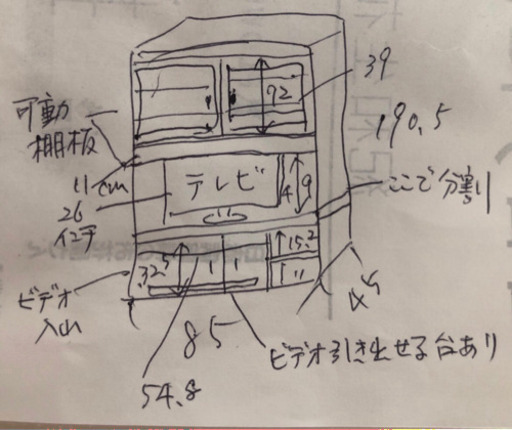 39
92
190.5
可動
棚板
11cm
テレビ
49
ここで分割り
26
インチ
32.5
15.2
ビデオ
入れ
45
85
ビデオ引き出せる台あり
54.8